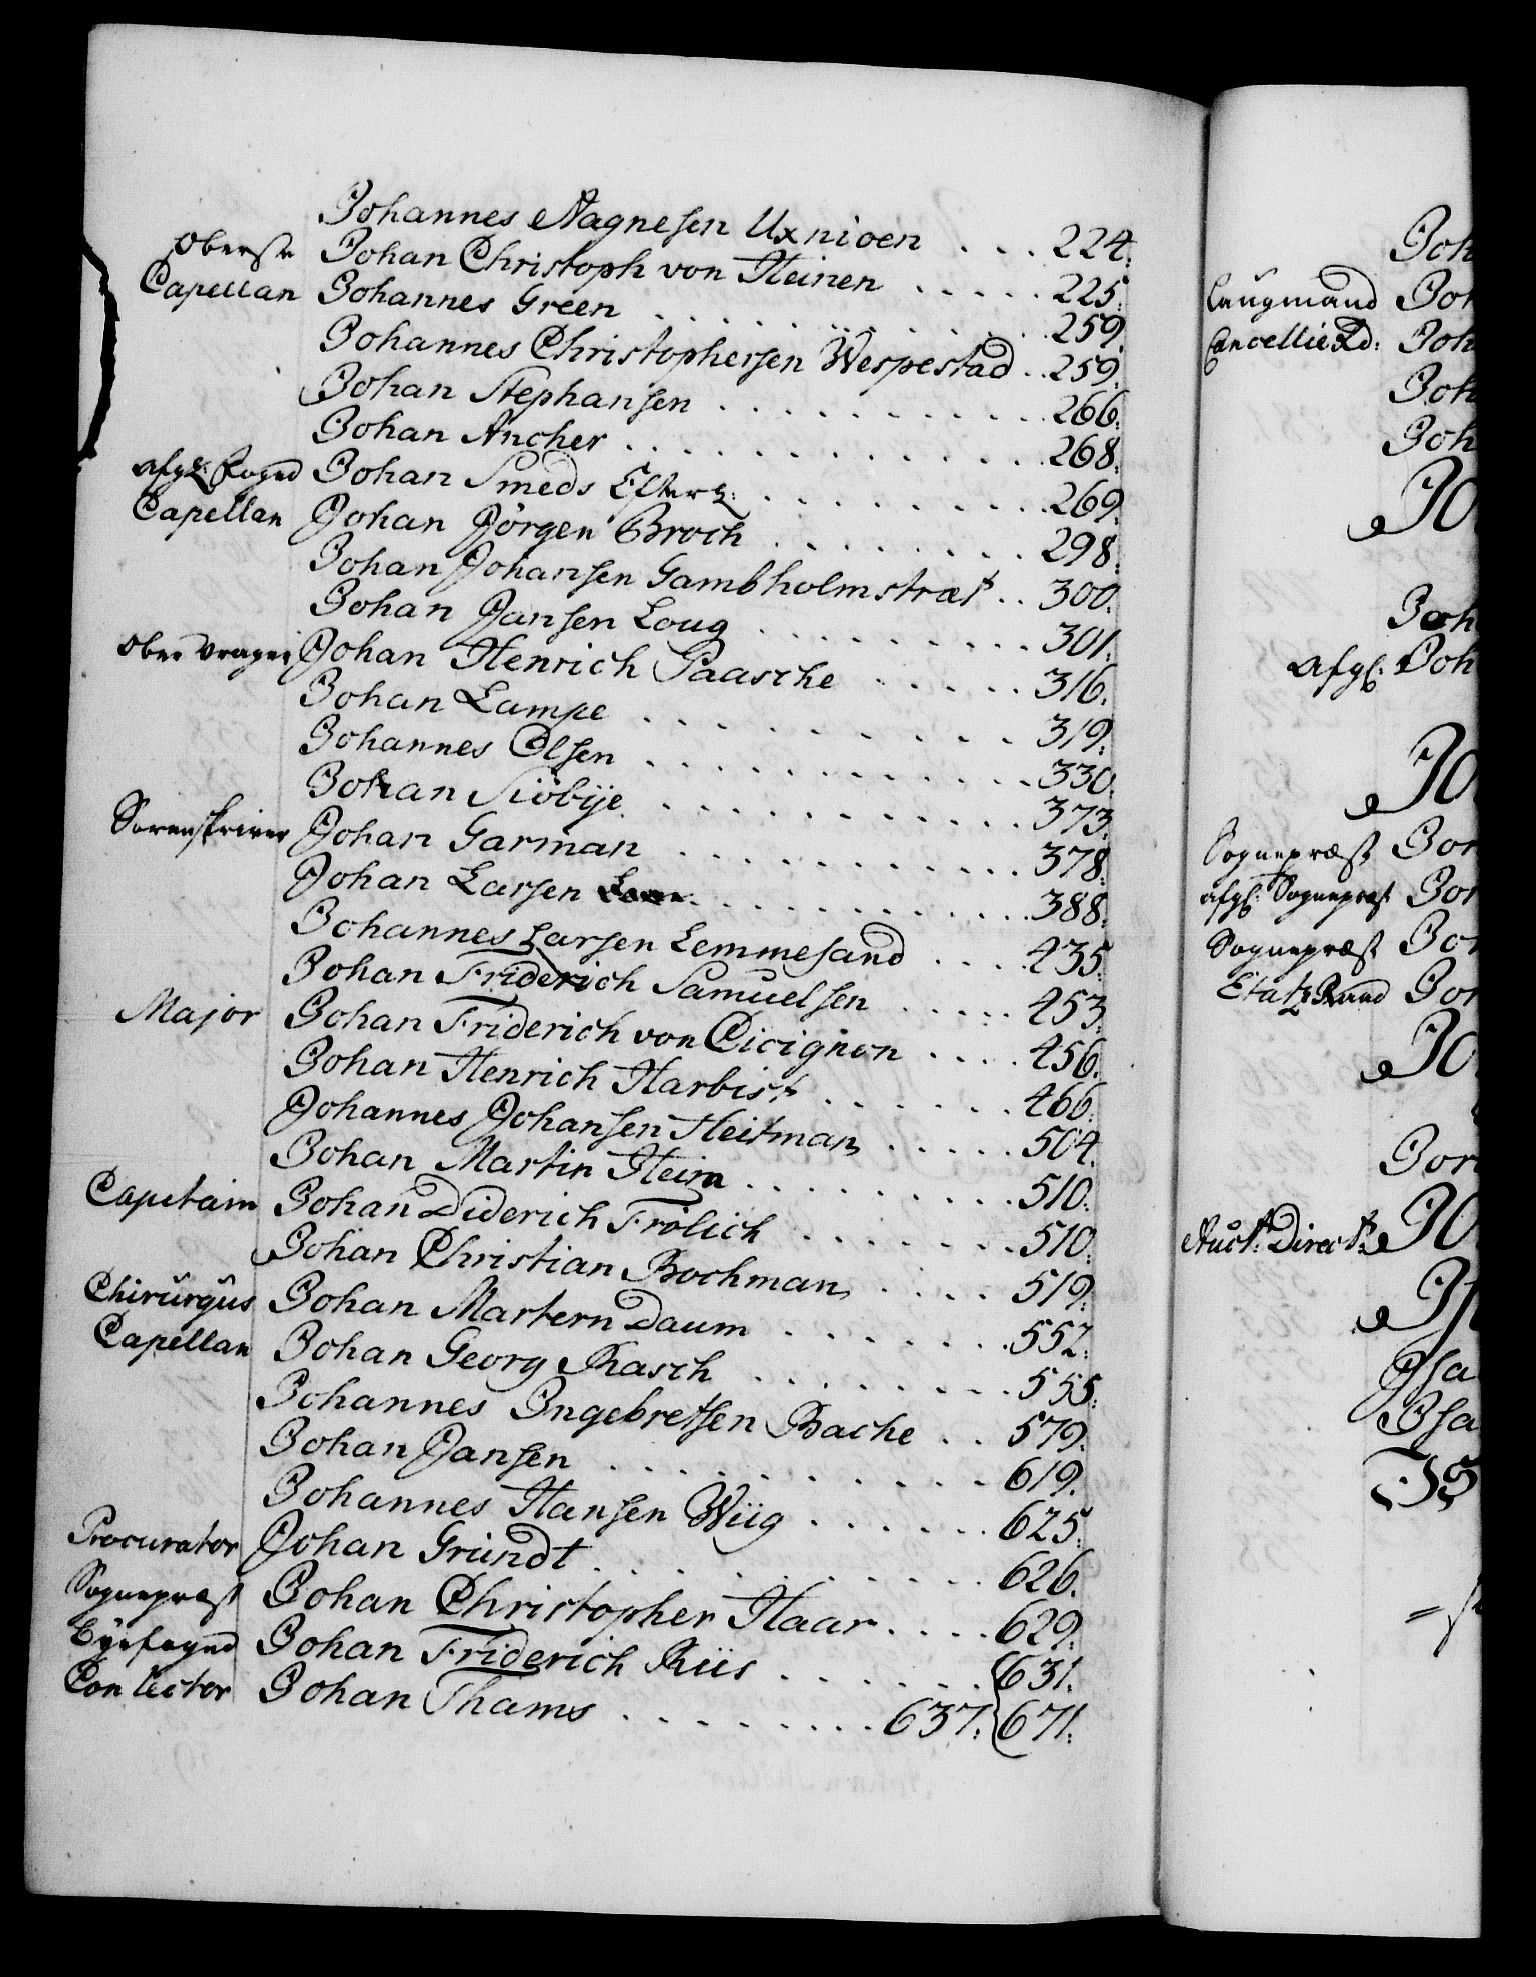 Johannes Magnesen Uxnioen . . . . 224.
Oberste Johan Christoph von Heinen . . . . . 225:
Capellan Johannes Green . . . . . . . . . . . . 259.
Johannes Christophersen Wespestad . . 259.
Johan Stephansen . . . . . . . . . . . 266.
Johan Ancher . . . . . . . . . . . . . 268.
afgl: Foged Johan Smeds Efterl: . . . . . . . . . . 269.
Capellan Johan Jörgen Broch . . . . . . . . . 298.
Johan Johansen Gambholmstræt . . 300.
Johan Jansen Loug . . . . . . . . . . 301.
Ober Vrager Johan Henrich Paasche . . . . . . 316.
Johan Lampe . . . . . . . . . . . . 319.
Johannes Olsen . . . . . . . . . . . . . 330.
Johan Siöbÿe . . . . . . . . . . . . 373.
Sorenskriver Johan Garman . . . . . . . . . . . . 378.
Johan Larsen . . . . . . . . . . . . 388.
Johannes Larsen Lemmesand . . . . 435.
Johan Friderich Samuelsen . . . . . . 453.
Major Johan Friderich von Cicignon . . . . 456.
Johan Henrich Harbist . . . . . . . 466.
Johannes Johansen Heitman . . . . . 504.
Johan Martin Heim . . . . . . . . . . 510.
Capitain Johan Diderich Frölich . . . . . . . . 510.
Johan Christian Bochman . . . . . 519.
Chirurgus Johan Martern Daum . . . . . . . . 552.
Capellan Johan Georg Rasch . . . . . . . . . 555.
Johannes Ingebretsen Bache . . 579.
Johan Jansen . . . . . . . . . . . . 619.
Johannes Hansen Wiig . . . . . . . 625.
Procurator Johan Grundt . . . . . . . . . . . . 626.
Sognepræst Johan Christopher Haar . . . . . 629.
Byefoged Johan Friderich Riis . . . . . . . 631.
Con Rector Johan Thams . . . . . . . . . 637. 671.
Joh
Laugmand Joh
CancellieRd: Joh
Joh
Joh
JO
Joh
afgl: Joh
JO
Sognepræst Jon
afgl: Sognepræst Jon
Sognepræst Jon
EtatzRaad Jon
JO
Jor
Auct: Direct: JO
Isa
Isa
IS